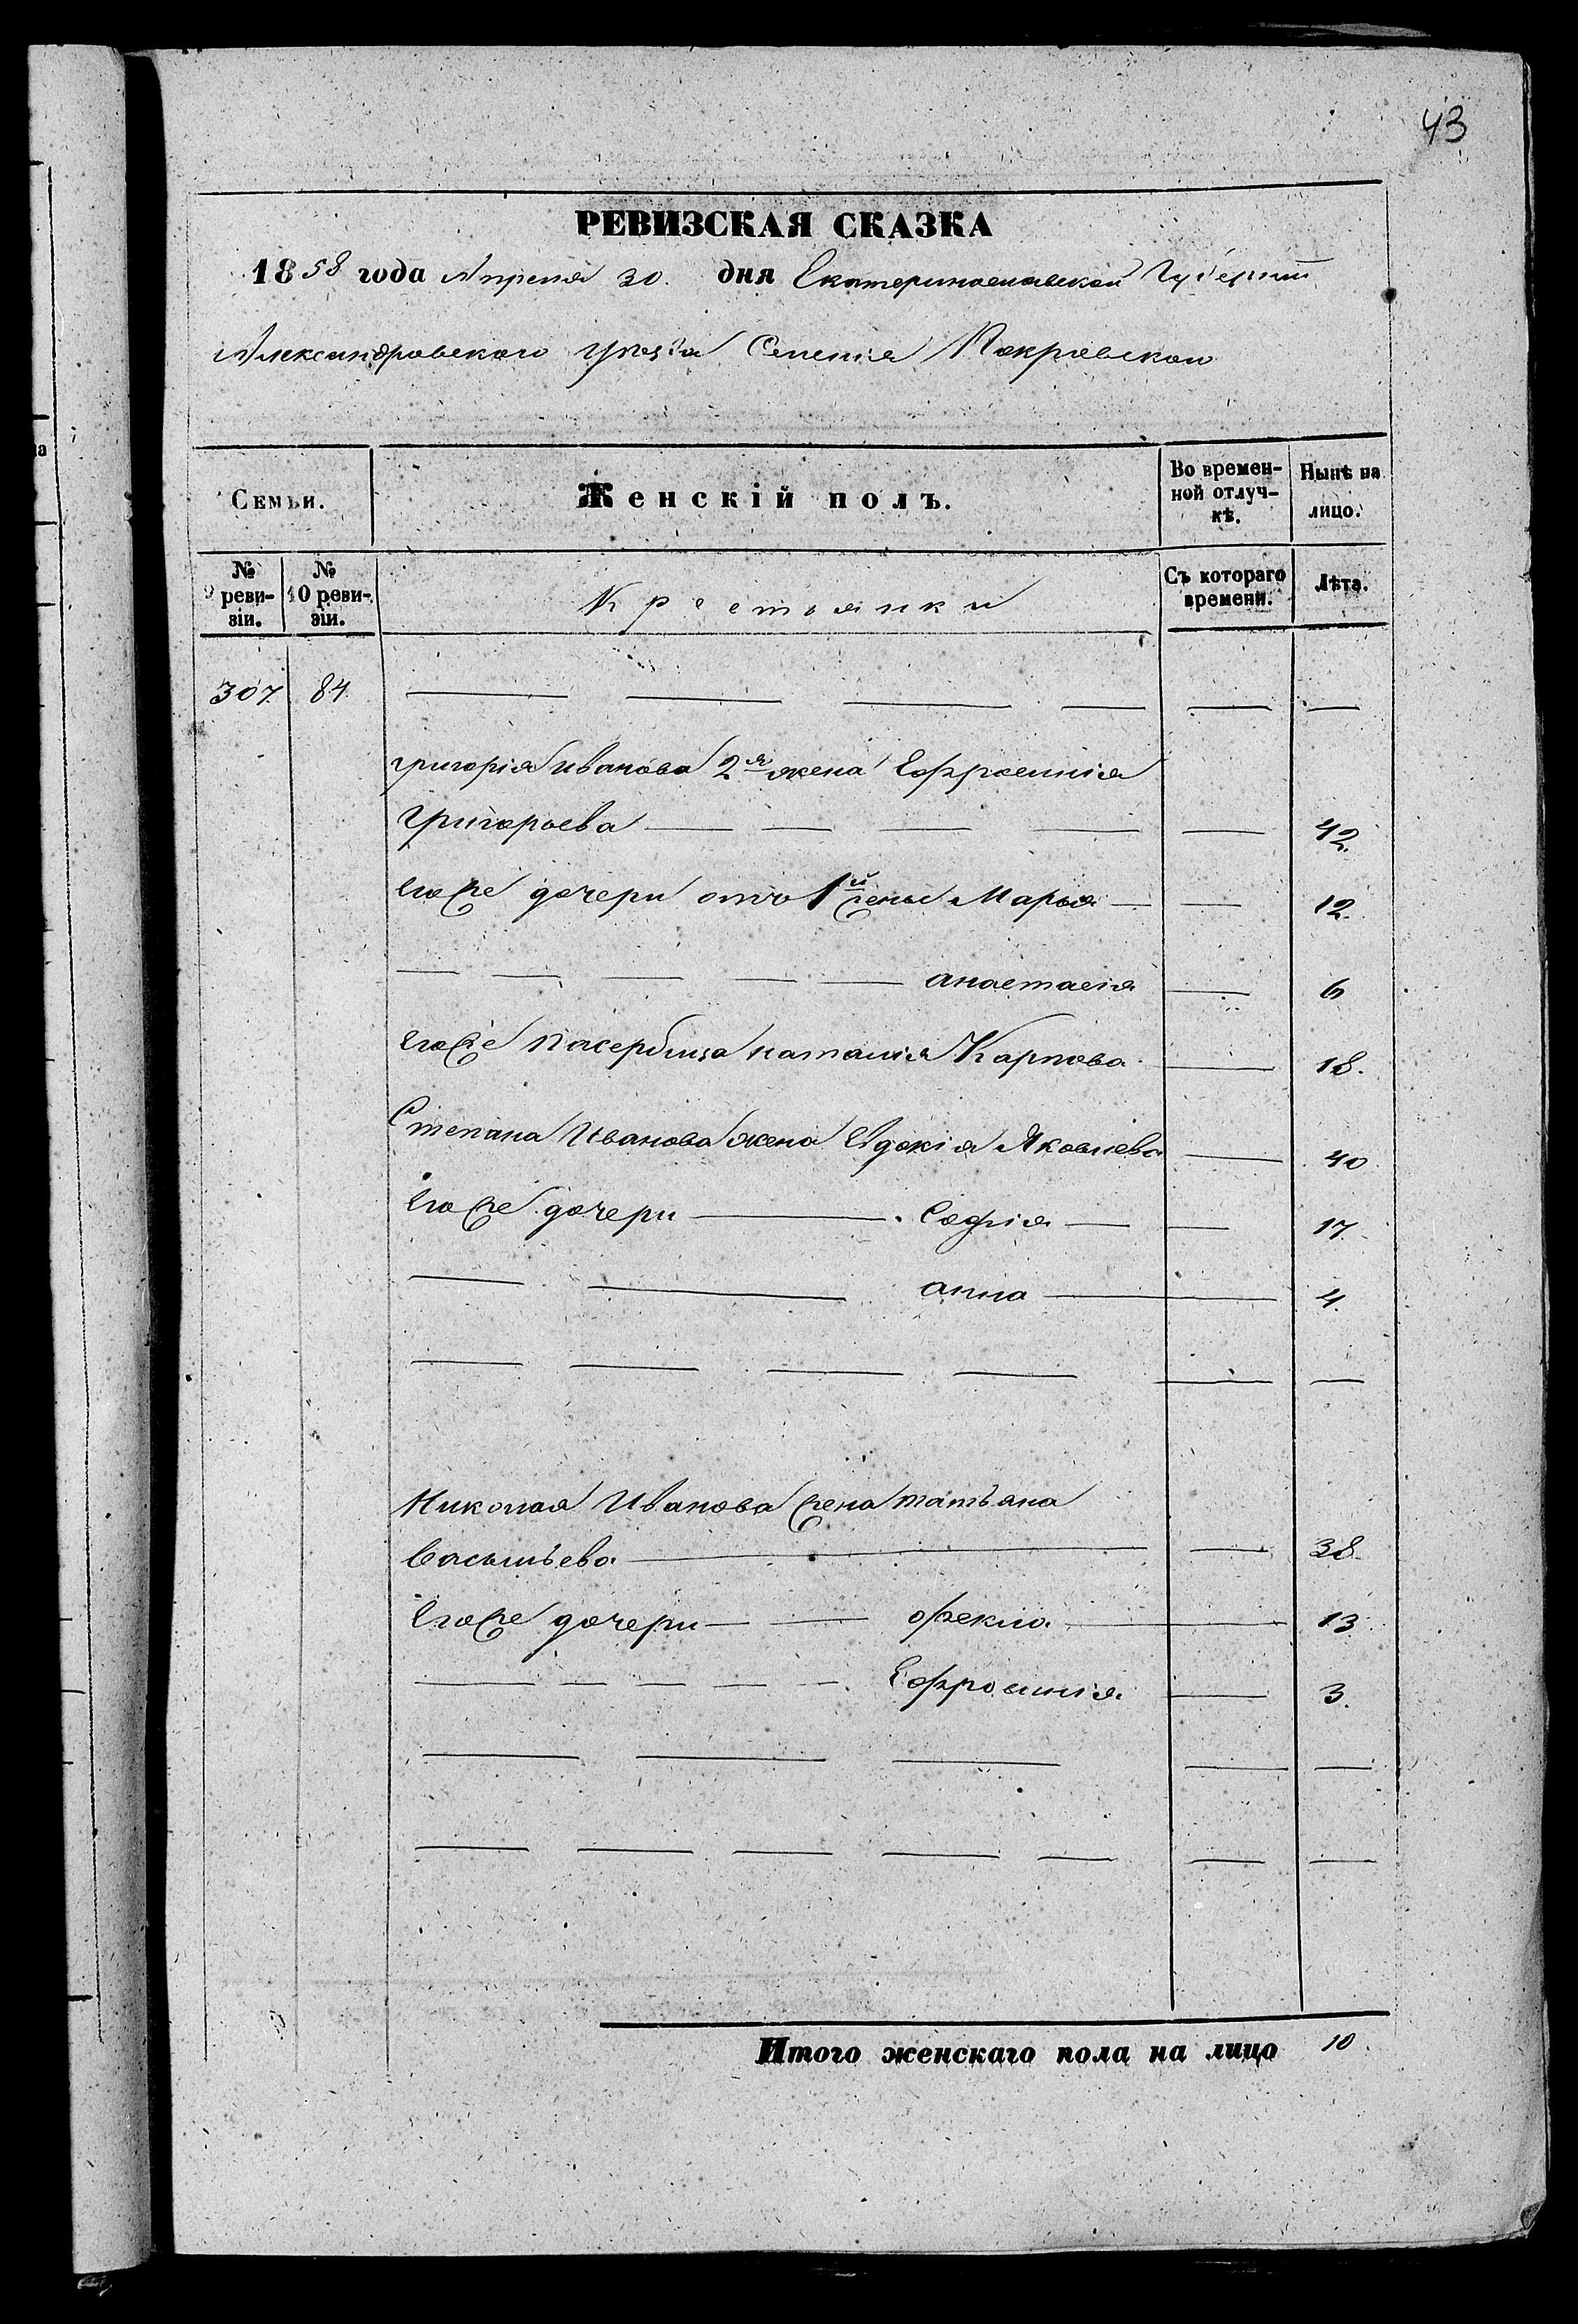 43
РЕВИЗСКАЯ СКАЗКА
1858 года Апреля 30. дня Екатеринославской Губернии
Александровского уезда Селения Покровскои
Семьи. Женскій полъ. Во времен-ной отлуч-кѣ. Нынѣ на лицо.
№ 9 реви-зіи. № 10 реви-зіи. Крестьянки Съ котораго времени. Лѣта.
307. 84
григорія Иванова 2я жена Ефросинія
Григорьева 42.
Его же дочери отъ 1й жены Марья 12.
анастасія 6
Его же пасербица наталія Карпова 18.
Степана Иванова жена Евдокія Яковлева 40
Его же дочери Софія 17.
анна 4.
Николая Иванова жена татьяна
Васильева 38.
Его же дочери фекла 13
Ефросинія 3.
Итого женскаго пола на лицо 10.